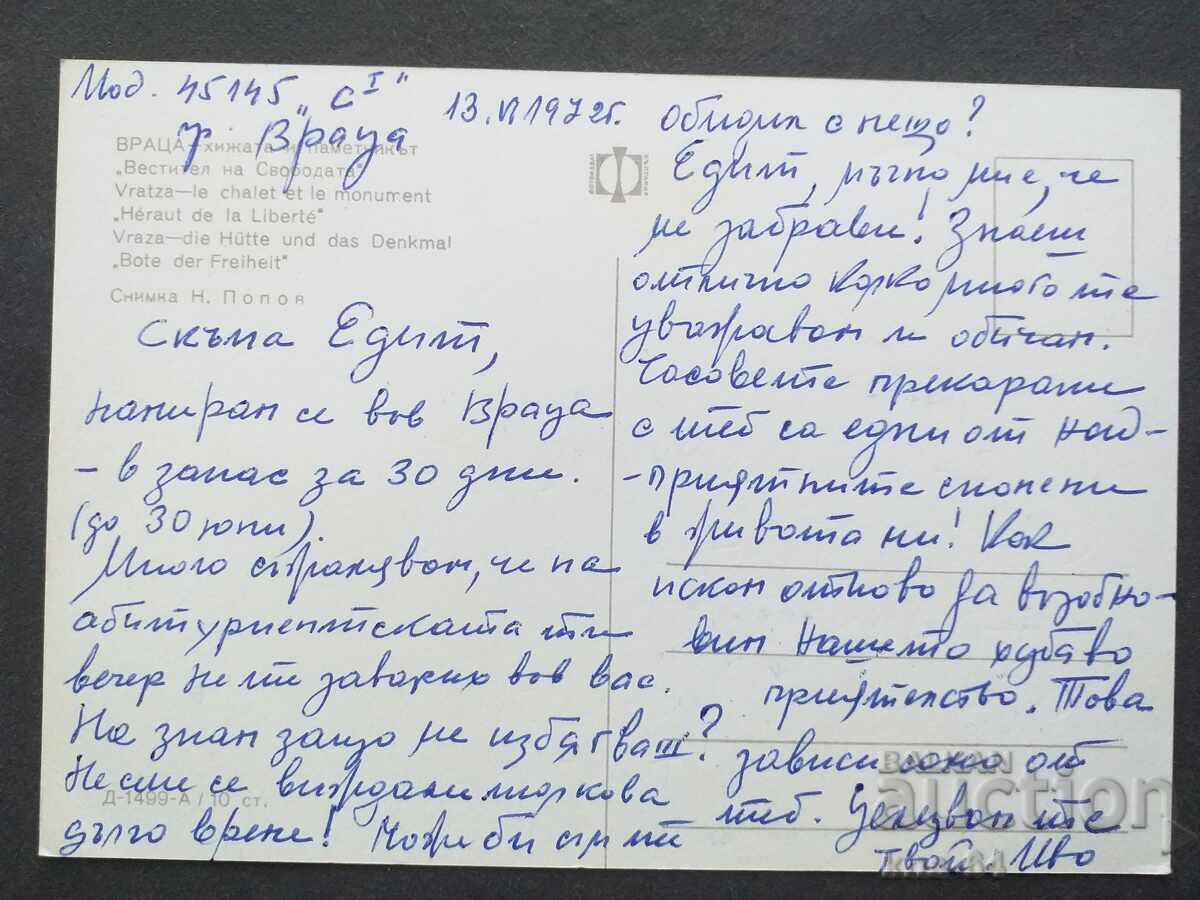 Мод. 45145 „С I“
гр. Враца
13.VI 1972г.
ВРАЦА—хижата и паметникът
„Вестител на Свободата“
Vratza—le chalet et le monument
„Héraut de la Liberté“
Vraza—die Hütte und das Denkmal
„Bote der Freiheit“
Снимка Н. Попов
Скъпа Едит,
намирам се във Враца
– в запас за 30 дни.
(до 30 юни).
Много съжалявам, че на
абитуриентската ти
вечер не те заварих във вас.
Не знам защо ме избягваш?
Не сме се виждали толкова
дълго време! Може би съм те
Д-1499-А / 10 ст.
обидил с нещо?
Едит, мъчно ми е, че
ме забрави! Знаеш
отлично колко много те
уважавам и обичам.
Часовете прекарани
с теб са едни от най-
-приятните спомени
в живота ми! Как
искам отново да възобно-
вим нашето хубаво
приятелство. Това
зависи само от
теб. Целувам те
твой: Иво
BALKAN
auction